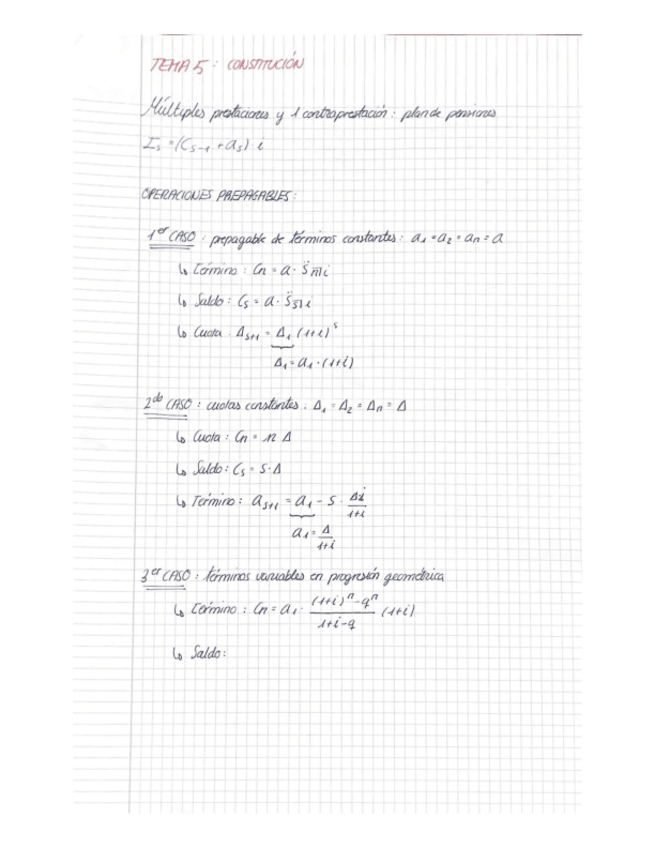 TEMA 5: CONSTITUCIÓN
Múltiples prestaciones y 1 contraprestación: plan de pensiones
I_s = (C_{s-1} + a_s) i
OPERACIONES PREPAGABLES:
1^er CASO: prepagable de términos constantes: a_1 = a_2 = a_n = a
↳ Término: C_n = a · s̈_{n̅|i}
↳ Saldo: C_s = a · s̈_{s̅|i}
↳ Cuota: Δ_{s+1} = Δ_1 (1+i)^s
Δ_1 = a_1 · (1+i)
2^do CASO: cuotas constantes: Δ_1 = Δ_2 = Δ_n = Δ
↳ Cuota: C_n = n Δ
↳ Saldo: C_s = s · Δ
↳ Término: a_{s+1} = a_1 - s · Δi / 1+i
a_1 = Δ / 1+i
3^er CASO: términos variables en progresión geométrica
↳ Término: C_n = a_1 · (1+i)^n - q^n / 1+i-q (1+i)
↳ Saldo: